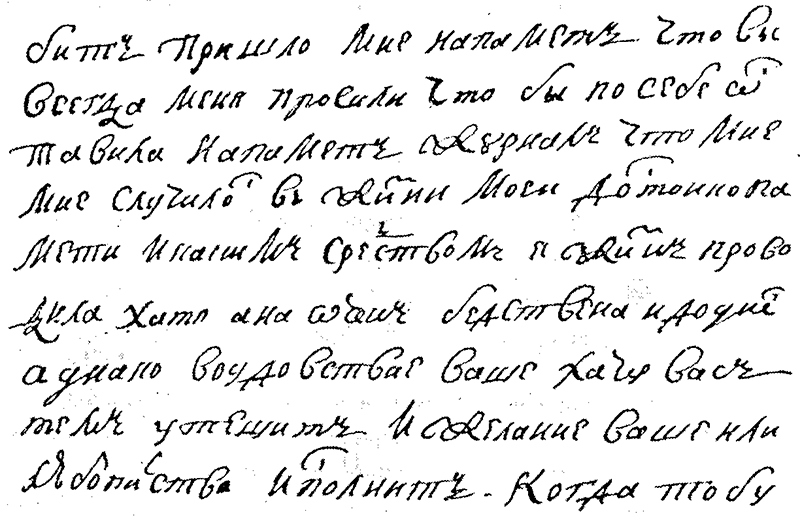 битъ пришло мне напаметъ что вы
всегда меня просили что бы по себе ѡс
тавила напаметъ журналъ что мне
мне случилос въ жизни моеи достоино па
мети и каимъ средствомъ я жизнъ прово
дила хатя ана ѡчинъ бедствена и до днес
аднако воудовствае ваше хачу васъ
темъ утешитъ и желание ваше или
любопиства исполнитъ. Когда то бу